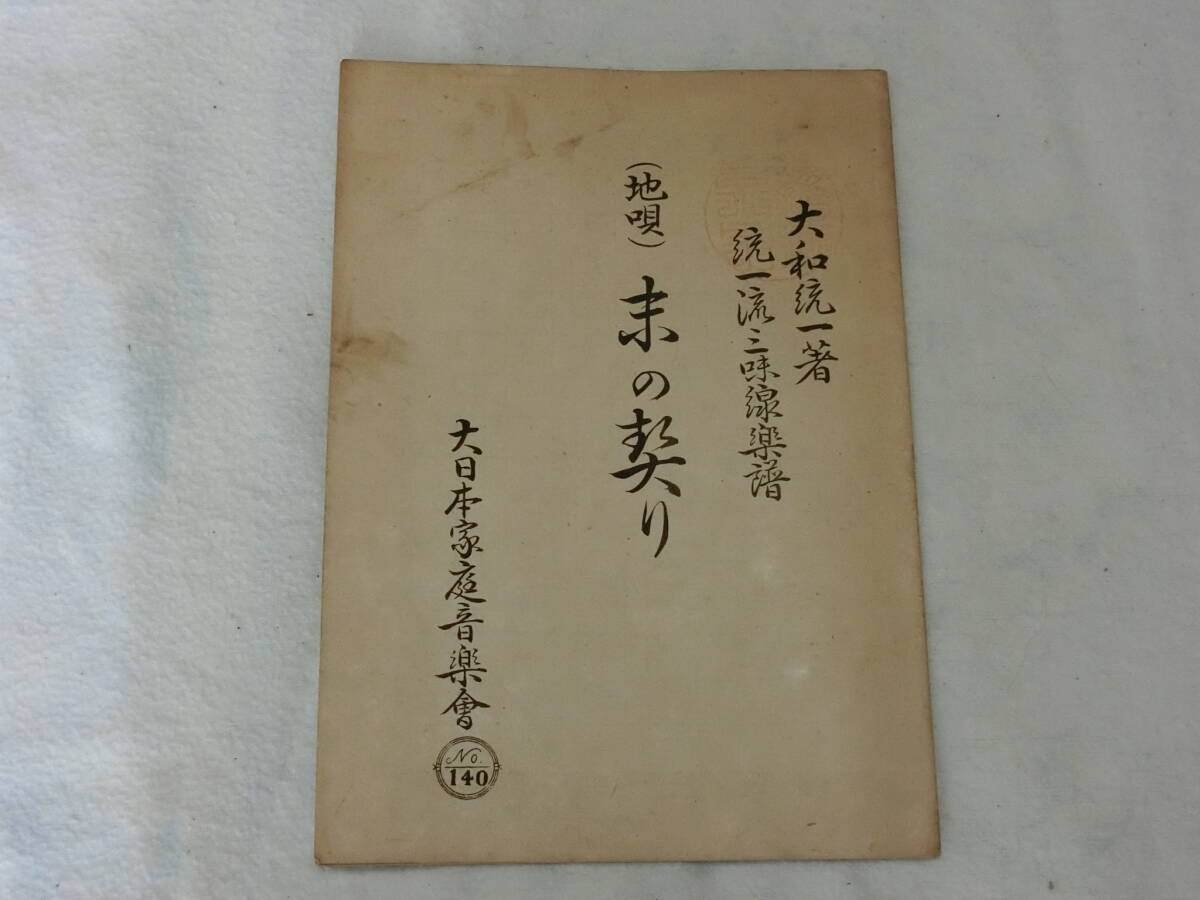 大和統一著
統一流三味線楽譜
(地唄) 末の契り
大日本家庭音楽會
No. 140